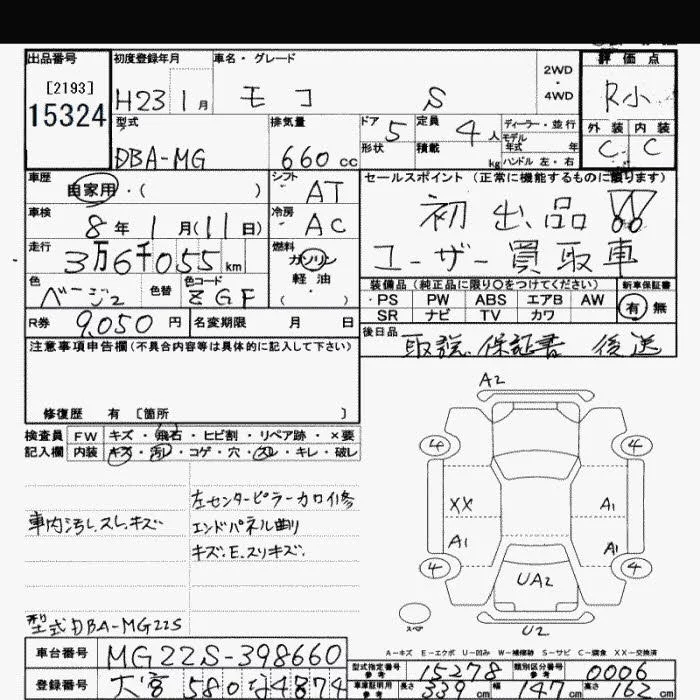 出品番号 初度登録年月 車名・グレード 2WD・4WD 評価点
[2193]
15324 H23 1月 モコ S R小
型式 排気量 ドア 5 定員 4人 ディーラー・並行 外装 内装
形状 積載 kg モデル年式 年 ハンドル 左・右 C C
DBA-MG 660cc
車歴 自家用・( ) シフト AT セールスポイント(正常に機能するものに限ります)
車検 8年 1月(11日) 冷房 AC 初出品!!
走行 3万6千055km 燃料 ガソリン 軽油 ( ・ ) ユーザー買取車
色 ベージュ 色替 色コード ZGF
装備品(純正品に限り○をつけてください) 新車保証書
・PS PW ABS エアB AW 有 無
SR ナビ TV カワ
R券 9,050円 名変期限 月 日
後日品 取説.保証書 後送
注意事項申告欄(不具合内容等は具体的に記入して下さい)
修復歴 有 〔箇所 〕
検査員 FW キズ・飛石・ヒビ割・リペア跡・×要
記入欄 内装 キズ・汚れ・コゲ・穴・スレ・キレ・破レ
左センターピラーカロイ修
車内汚れ.スレ.キズ エンドパネル曲り
キズ.E.スリキズ.
型式DBA-MG22S
A2
4 4
XX A1
A1 A1
4 4
UA2
スペア
U2
A-キズ E-エクボ U-凹み W-補修跡 S-サビ C-腐食 XX-交換済
車台番号 MG22S-398660 型式指定番号 参考 15278 類別区分番号 参考 0006
登録番号 大宮 580 な4874 車庫証明用 参考 長さ 339cm 幅 147cm 高さ 162cm